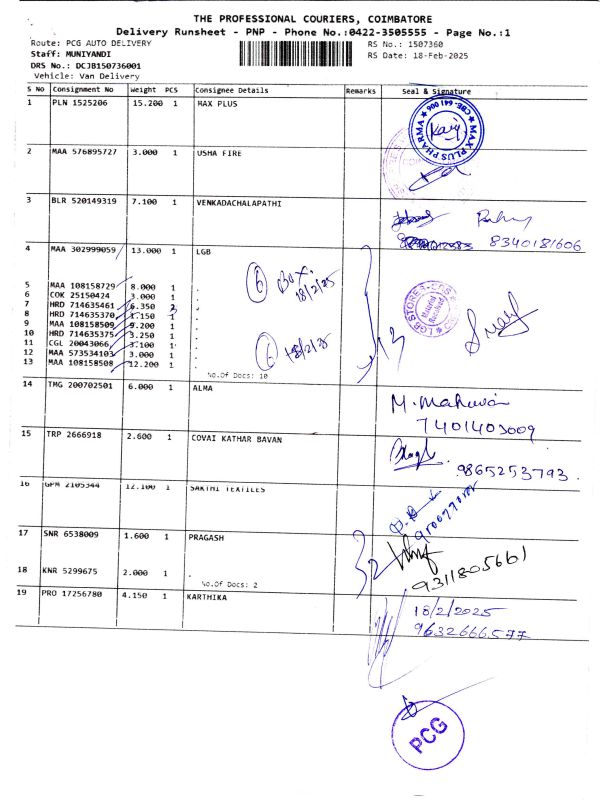 THE PROFESSIONAL COURIERS, COIMBATORE
Delivery Runsheet - PNP - Phone No.:0422-3505555 - Page No.:1
Route: PCG AUTO DELIVERY RS No.: 1507360
Staff: MUNIYANDI RS Date: 18-Feb-2025
DRS No.: DCJB150736001
Vehicle: Van Delivery
S No Consignment No Weight PCS Consignee Details Remarks Seal & Signature
1 PLN 1525206 15.200 1 MAX PLUS
MAX PLUS PHARMA CBE-641 006
2 MAA 576895727 3.000 1 USHA FIRE
3 BLR 520149319 7.100 1 VENKADACHALAPATHI
8340181606
4 MAA 302999059 13.000 1 LGB
5 MAA 108158729 8.000 1 .
6 COK 25150424 3.000 1 .
7 HRD 714635461 6.350 .
8 HRD 714635370 1.150 1 .
9 MAA 108158509 9.200 1 .
10 HRD 714635375 3.250 1 .
11 CGL 20043066 3.100 1 .
12 MAA 573534103 3.000 1 .
13 MAA 108158508 12.200 1 .
No.Of Docs: 10
6 Box. 18/2/25
6 18/2/25
13
LGB STORES-CBE
Material Received
14 TMG 200702501 6.000 1 ALMA
7401403009
15 TRP 2666918 2.600 1 COVAI KATHAR BAVAN
9865253793.
16 GPM 2105344 12.100 1 SAKTHI TEXTILES
17 SNR 6538009 1.600 1 PRAGASH
18 KNR 5299675 2.000 1 .
No.Of Docs: 2
9311805661
19 PRO 17256780 4.150 1 KARTHIKA
18/2/2025
9632666577
PCG